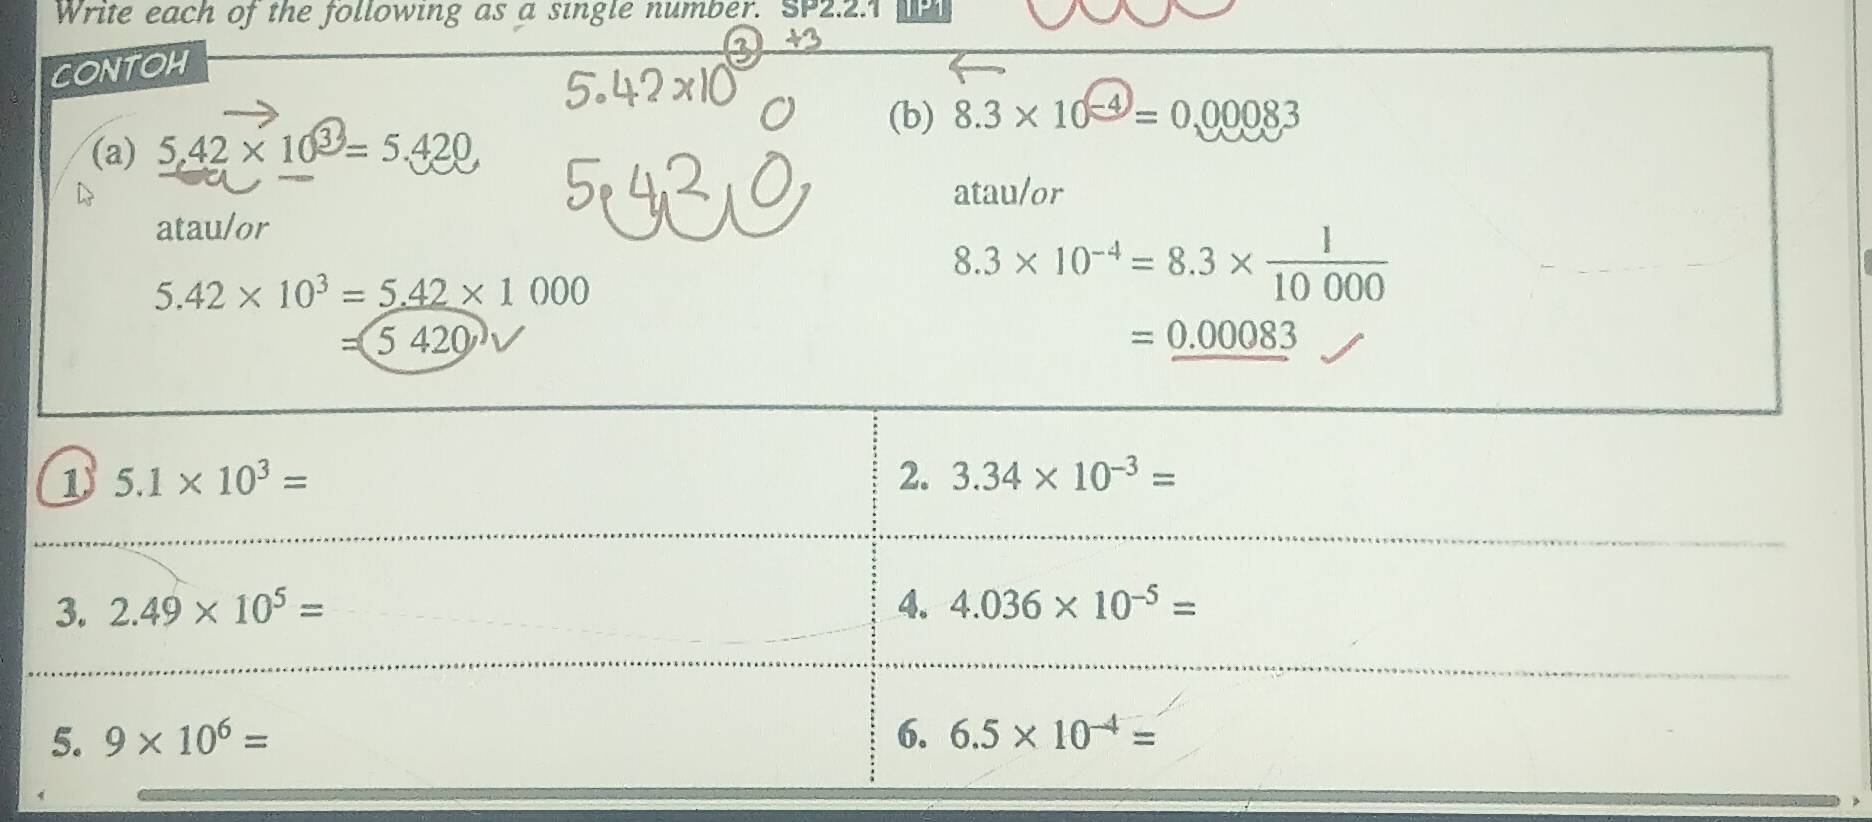 Write each of the following as a single number. SP2.2.1 TP1
CONTOH
5.42 × 10③ +3
0
(a) 5.42 × 10³ = 5.420.
5.420,
atau/or
5.42 × 10³ = 5.42 × 1 000
= 5 420 ✓
(b) 8.3 × 10⁻⁴ = 0.00083
atau/or
8.3 × 10⁻⁴ = 8.3 × 1/10 000
= 0.00083 ✓
1. 5.1 × 10³ =
2. 3.34 × 10⁻³ =
3. 2.49 × 10⁵ =
4. 4.036 × 10⁻⁵ =
5. 9 × 10⁶ =
6. 6.5 × 10⁻⁴ =